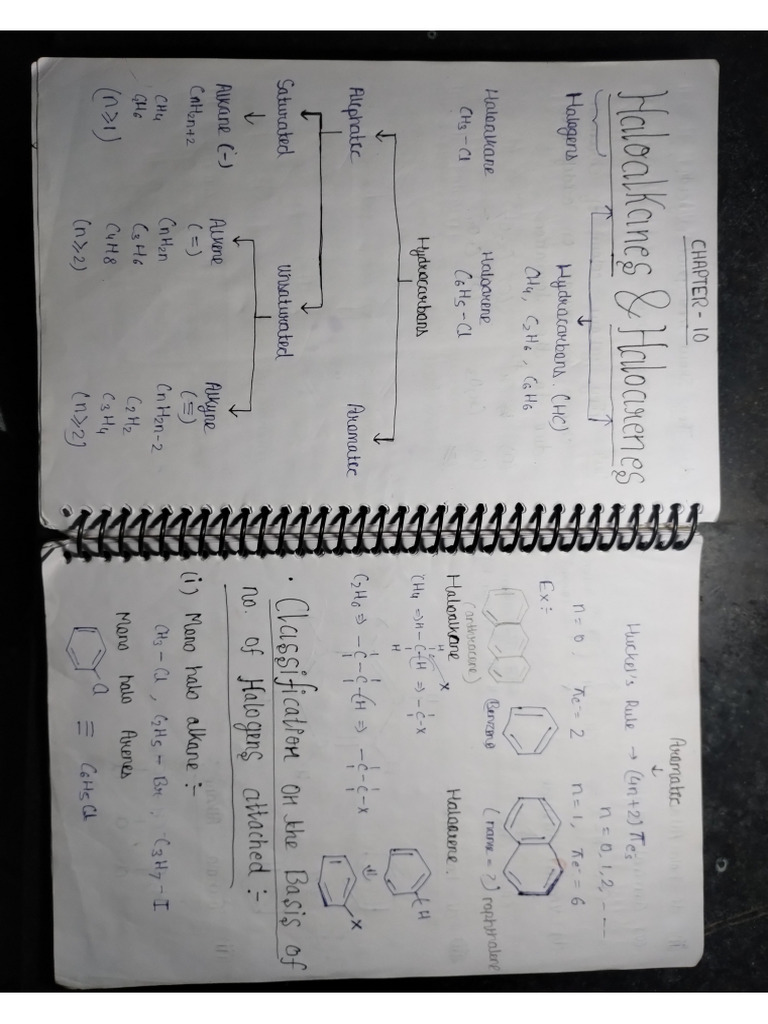 CHAPTER - 10
Haloalkanes & Haloarenes
Halogens
Hydrocarbons. (HC)
CH4, C2H6, C6H6
Haloalkane
CH3-Cl
Haloarene
C6H5-Cl
Hydrocarbons
Aliphatic
Aromatic
Saturated
Unsaturated
Alkane (-)
CnH2n+2
CH4
C2H6
(n≥1)
Alkene
(=)
CnH2n
C3H6
C4H8
(n≥2)
Alkyne
(≡)
CnH2n-2
C2H2
C3H4
(n≥2)
Aromatic
Huckel's Rule → (4n+2)πes
n=0,1,2, ---
n=0, πe⁻=2
n=1, πe⁻=6
Ex:-
(anthracene)
Benzene
(name=?) naphthalene
Haloalkane
Haloarene.
CH4 ⇒ H-C-H ⇒ -C-X
H
H
X
C2H6 ⇒ -C-C-H ⇒ -C-C-X
H
X
• Classification on the Basis of
no. of Halogens attached :-
(i) Mono halo alkane :-
CH3-Cl, C2H5-Br, C3H7-I
Mono halo Arenes
Cl ≡ C6H5Cl